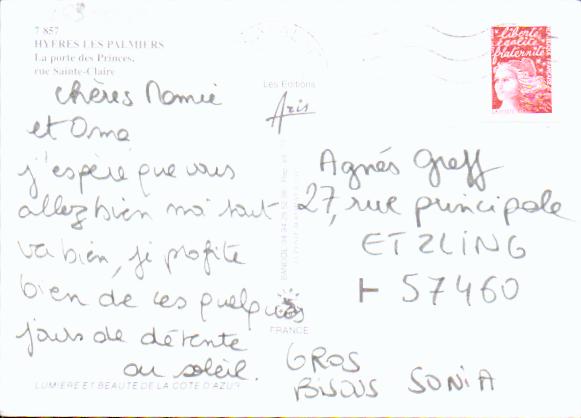 7 857
HYERES LES PALMIERS
La porte des Princes,
rue Sainte-Claire
chères Mamie
et Oma
j'espère que vous
allez bien moi tout
va bien, je profite
bien de ces quelques
jours de détente
au soleil.
GROS
BISOUS SONIA
Les Editions
Aris
FRANCE
LUMIERE ET BEAUTE DE LA COTE D'AZUR
liberté
égalité
fraternité
Agnés Greff
27, rue principale
ETZLING
57460